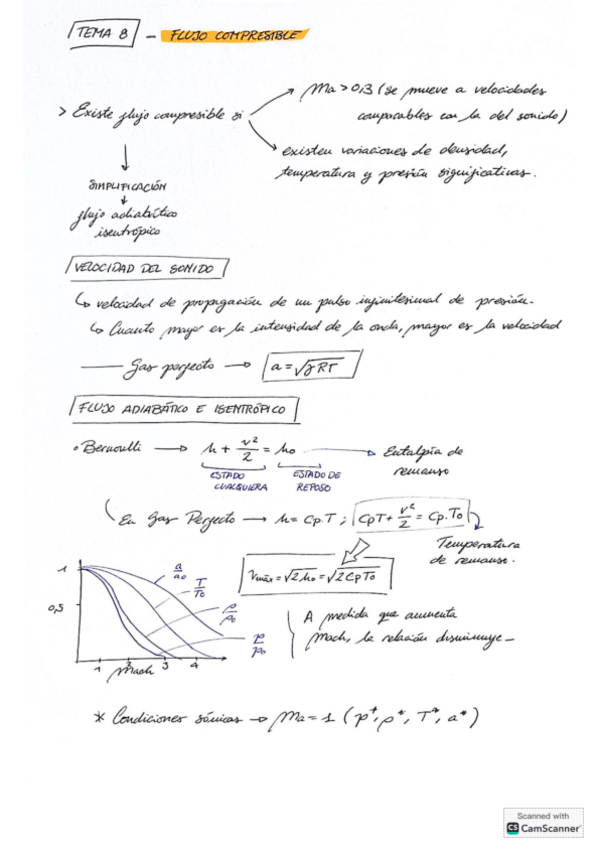 TEMA 8 - FLUJO COMPRESIBLE
Ma > 0,3 (se mueve a velocidades
> Existe flujo compresible si
comparables con la del sonido)
existen variaciones de densidad,
temperatura y presión significativas.
SIMPLIFICACIÓN
flujo adiabático
isentrópico
VELOCIDAD DEL SONIDO
↳ velocidad de propagación de un pulso infinitesimal de presión.
↳ Cuanto mayor es la intensidad de la onda, mayor es la velocidad
Gas perfecto → a = √γRT
FLUJO ADIABÁTICO E ISENTRÓPICO
• Bernoulli → h + v²/2 = h₀ → Entalpía de
remanso
ESTADO CUALQUIERA
ESTADO DE REPOSO
En Gas Perfecto → h = Cp.T ; CpT + v²/2 = Cp.T₀
Temperatura
de remanso.
Vmáx = √2h₀ = √2CpT₀
1
0,5
a/a₀
T/T₀
ρ/ρ₀
p/p₀
1 2 3 4
Mach
A medida que aumenta
Mach, la relación disminuye -
* Condiciones sónicas → Ma = 1 (p*, ρ*, T*, a*)
Scanned with
CS CamScanner